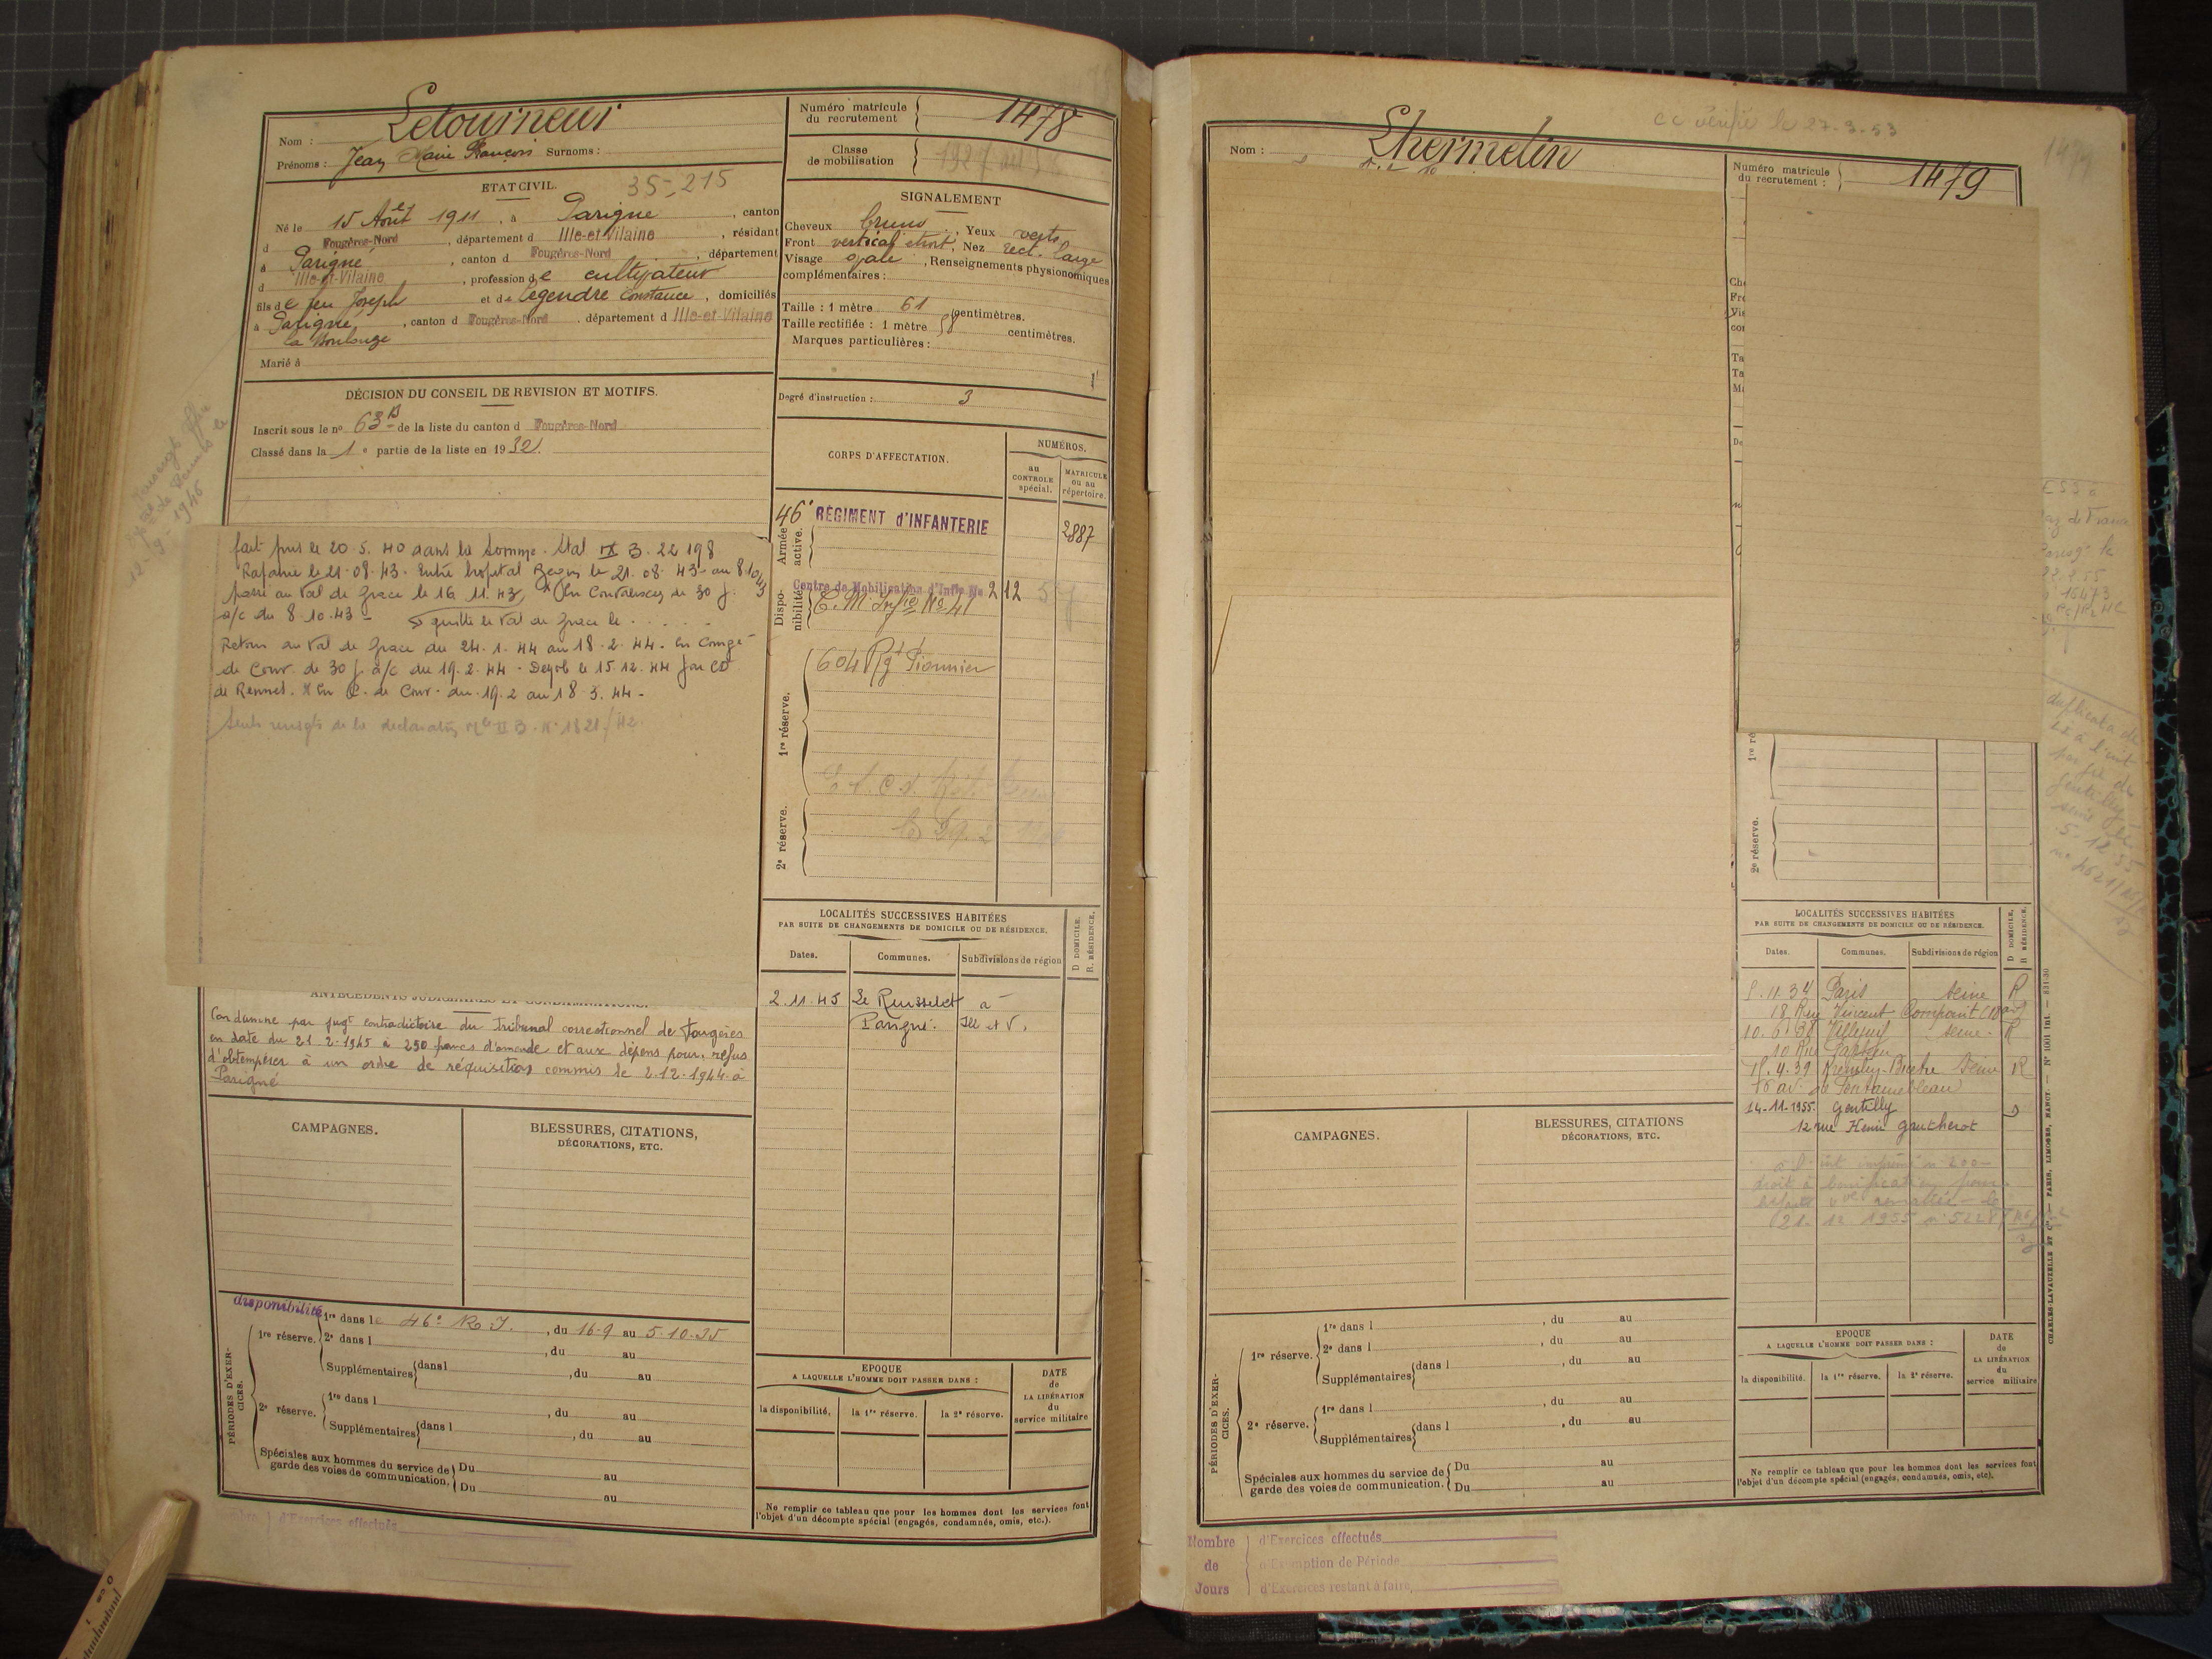 Nom : Letourneur
Prénoms : Jean Marie François Surnoms :
ETAT CIVIL. 35-215
Né le 15 Août 1911, à Parigné, canton
d Fougères-Nord, département d Ille-et-Vilaine, résidant
à Parigné, canton d Fougères-Nord, département
d Ille-et-Vilaine, profession de cultivateur
fils de feu Joseph et de Legendre Constance, domiciliés
à Parigné, canton d Fougères-Nord. département d Ille-et-Vilaine
Marié à
DÉCISION DU CONSEIL DE REVISION ET MOTIFS.
Inscrit sous le nº 63 de la liste du canton d Fougères-Nord
Classé dans la 1e partie de la liste en 1932.
fait pris le 20.5.40 dans la Somme. Stal IX B. 22 198
Rapatrié le 21.08.43. Entré hopital Begin le 21.08.43 au 8.10.43
passé au Val de Grace le 16.11.43 En Convalescce de 30 j.
a/c du 8.10.43 quitte le Val de Grace le . . . . .
Retour au Val de Grace du 24.1.44 au 18.2.44. En Congé
de Conv. de 30 j. a/c du 19.2.44. Demob le 15.12.44 par CD
de Rennes. X En C. de Conv. du 19.2 au 18.3.44.
ANTÉCÉDENTS JUDICIAIRES ET CONDAMNATIONS.
Condamné par jugt contradictoire du Tribunal correctionnel de Fougères
en date du 21.2.1945 à 250 francs d'amende et aux dépens pour refus
d'obtempérer à un ordre de réquisition commis le 2.12.1944 à
Parigné
CAMPAGNES.
BLESSURES, CITATIONS,
DÉCORATIONS, ETC.
disponibilité
PÉRIODES D'EXERCICES.
1re réserve. 1re dans le 46e R.I., du 16-9 au 5-10-35
2e dans l , du au
Supplémentaires dans l , du au
2e réserve. 1re dans l , du au
Supplémentaires dans l , du au
Spéciales aux hommes du service de Du au
garde des voies de communication. Du au
d'Exercices effectués
Numéro matricule
du recrutement 1478
Classe
de mobilisation
SIGNALEMENT
Cheveux bruns, Yeux verts
Front vertical étroit, Nez rect. large
Visage ovale, Renseignements physionomiques
complémentaires :
Taille : 1 mètre 61 centimètres.
Taille rectifiée : 1 mètre 58 centimètres.
Marques particulières :
Degré d'instruction : 3
CORPS D'AFFECTATION.
NUMÉROS.
au
CONTROLE
spécial.
MATRICULE
ou au
répertoire.
Armée active.
46e RÉGIMENT d'INFANTERIE 2887
Disponibilité
Centre de Mobilisation d'Infie No 212
C.M Infie No 41
1re réserve.
604 Rgt Pionnier
2e réserve.
LOCALITÉS SUCCESSIVES HABITÉES
PAR SUITE DE CHANGEMENTS DE DOMICILE OU DE RÉSIDENCE.
D DOMICILE.
R. RÉSIDENCE.
Dates. Communes. Subdivisions de région
2.11.45 Le Rousselet à
Parigné. Ill et V.
EPOQUE
A LAQUELLE L'HOMME DOIT PASSER DANS :
la disponibilité. la 1re réserve. la 2e réserve.
DATE
de
LA LIBÉRATION
du
service militaire
Ne remplir ce tableau que pour les hommes dont les services font
l'objet d'un décompte spécial (engagés, condamnés, omis, etc.).
cc vérifié le 27-3-53
Nom : Lhermelin
1479
Numéro matricule
du recrutement : 1479
1re ré
2e réserve.
LOCALITÉS SUCCESSIVES HABITÉES
PAR SUITE DE CHANGEMENTS DE DOMICILE OU DE RÉSIDENCE.
D DOMICILE,
R RÉSIDENCE.
Dates. Communes. Subdivisions de région
11.34 Paris Seine R
18 Rue Vincent Compoint
10.6.38 Villejuif Seine R
10 Rue
4.39 Kremlin-Bicêtre Seine R
av. de Fontainebleau
14-11-1955. Gentilly D
12 rue Henri Gautherot
CAMPAGNES.
BLESSURES, CITATIONS
DÉCORATIONS, ETC.
PÉRIODES D'EXERCICES.
1re réserve. 1re dans l , du au
2e dans l , du au
Supplémentaires dans l , du au
2e réserve. 1re dans l , du au
Supplémentaires dans l , du au
Spéciales aux hommes du service de Du au
garde des voies de communication. Du au
EPOQUE
A LAQUELLE L'HOMME DOIT PASSER DANS :
la disponibilité. la 1re réserve. la 2e réserve.
DATE
de
LA LIBÉRATION
du
service militaire
Ne remplir ce tableau que pour les hommes dont les services font
l'objet d'un décompte spécial (engagés, condamnés, omis, etc).
CHARLES-LAVAUZELLE ET Cie — PARIS, LIMOGES, NANCY. — Nº 1001 Int. — 831-30
Nombre de Jours
d'Exercices effectués
d'Exemption de Période
d'Exercices restant à faire,